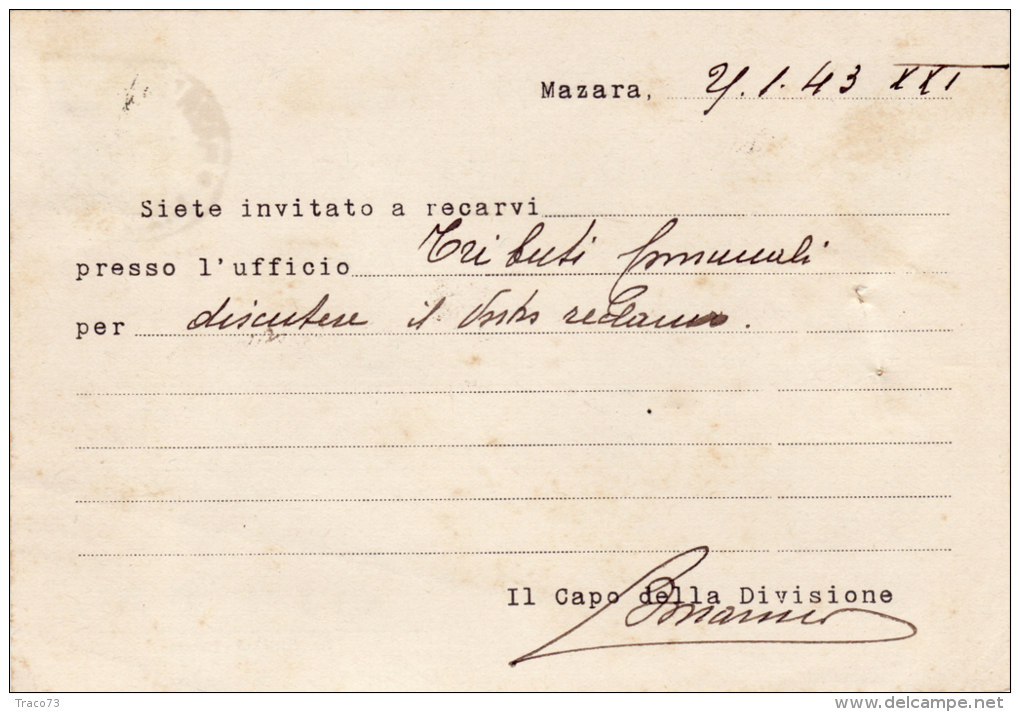 Mazara, 21.1.43 XXI
Siete invitato a recarvi
presso l'ufficio Tributi Comunali
per discutere il Vostro reclamo.
Il Capo della Divisione
Traco73
www.delcampe.net